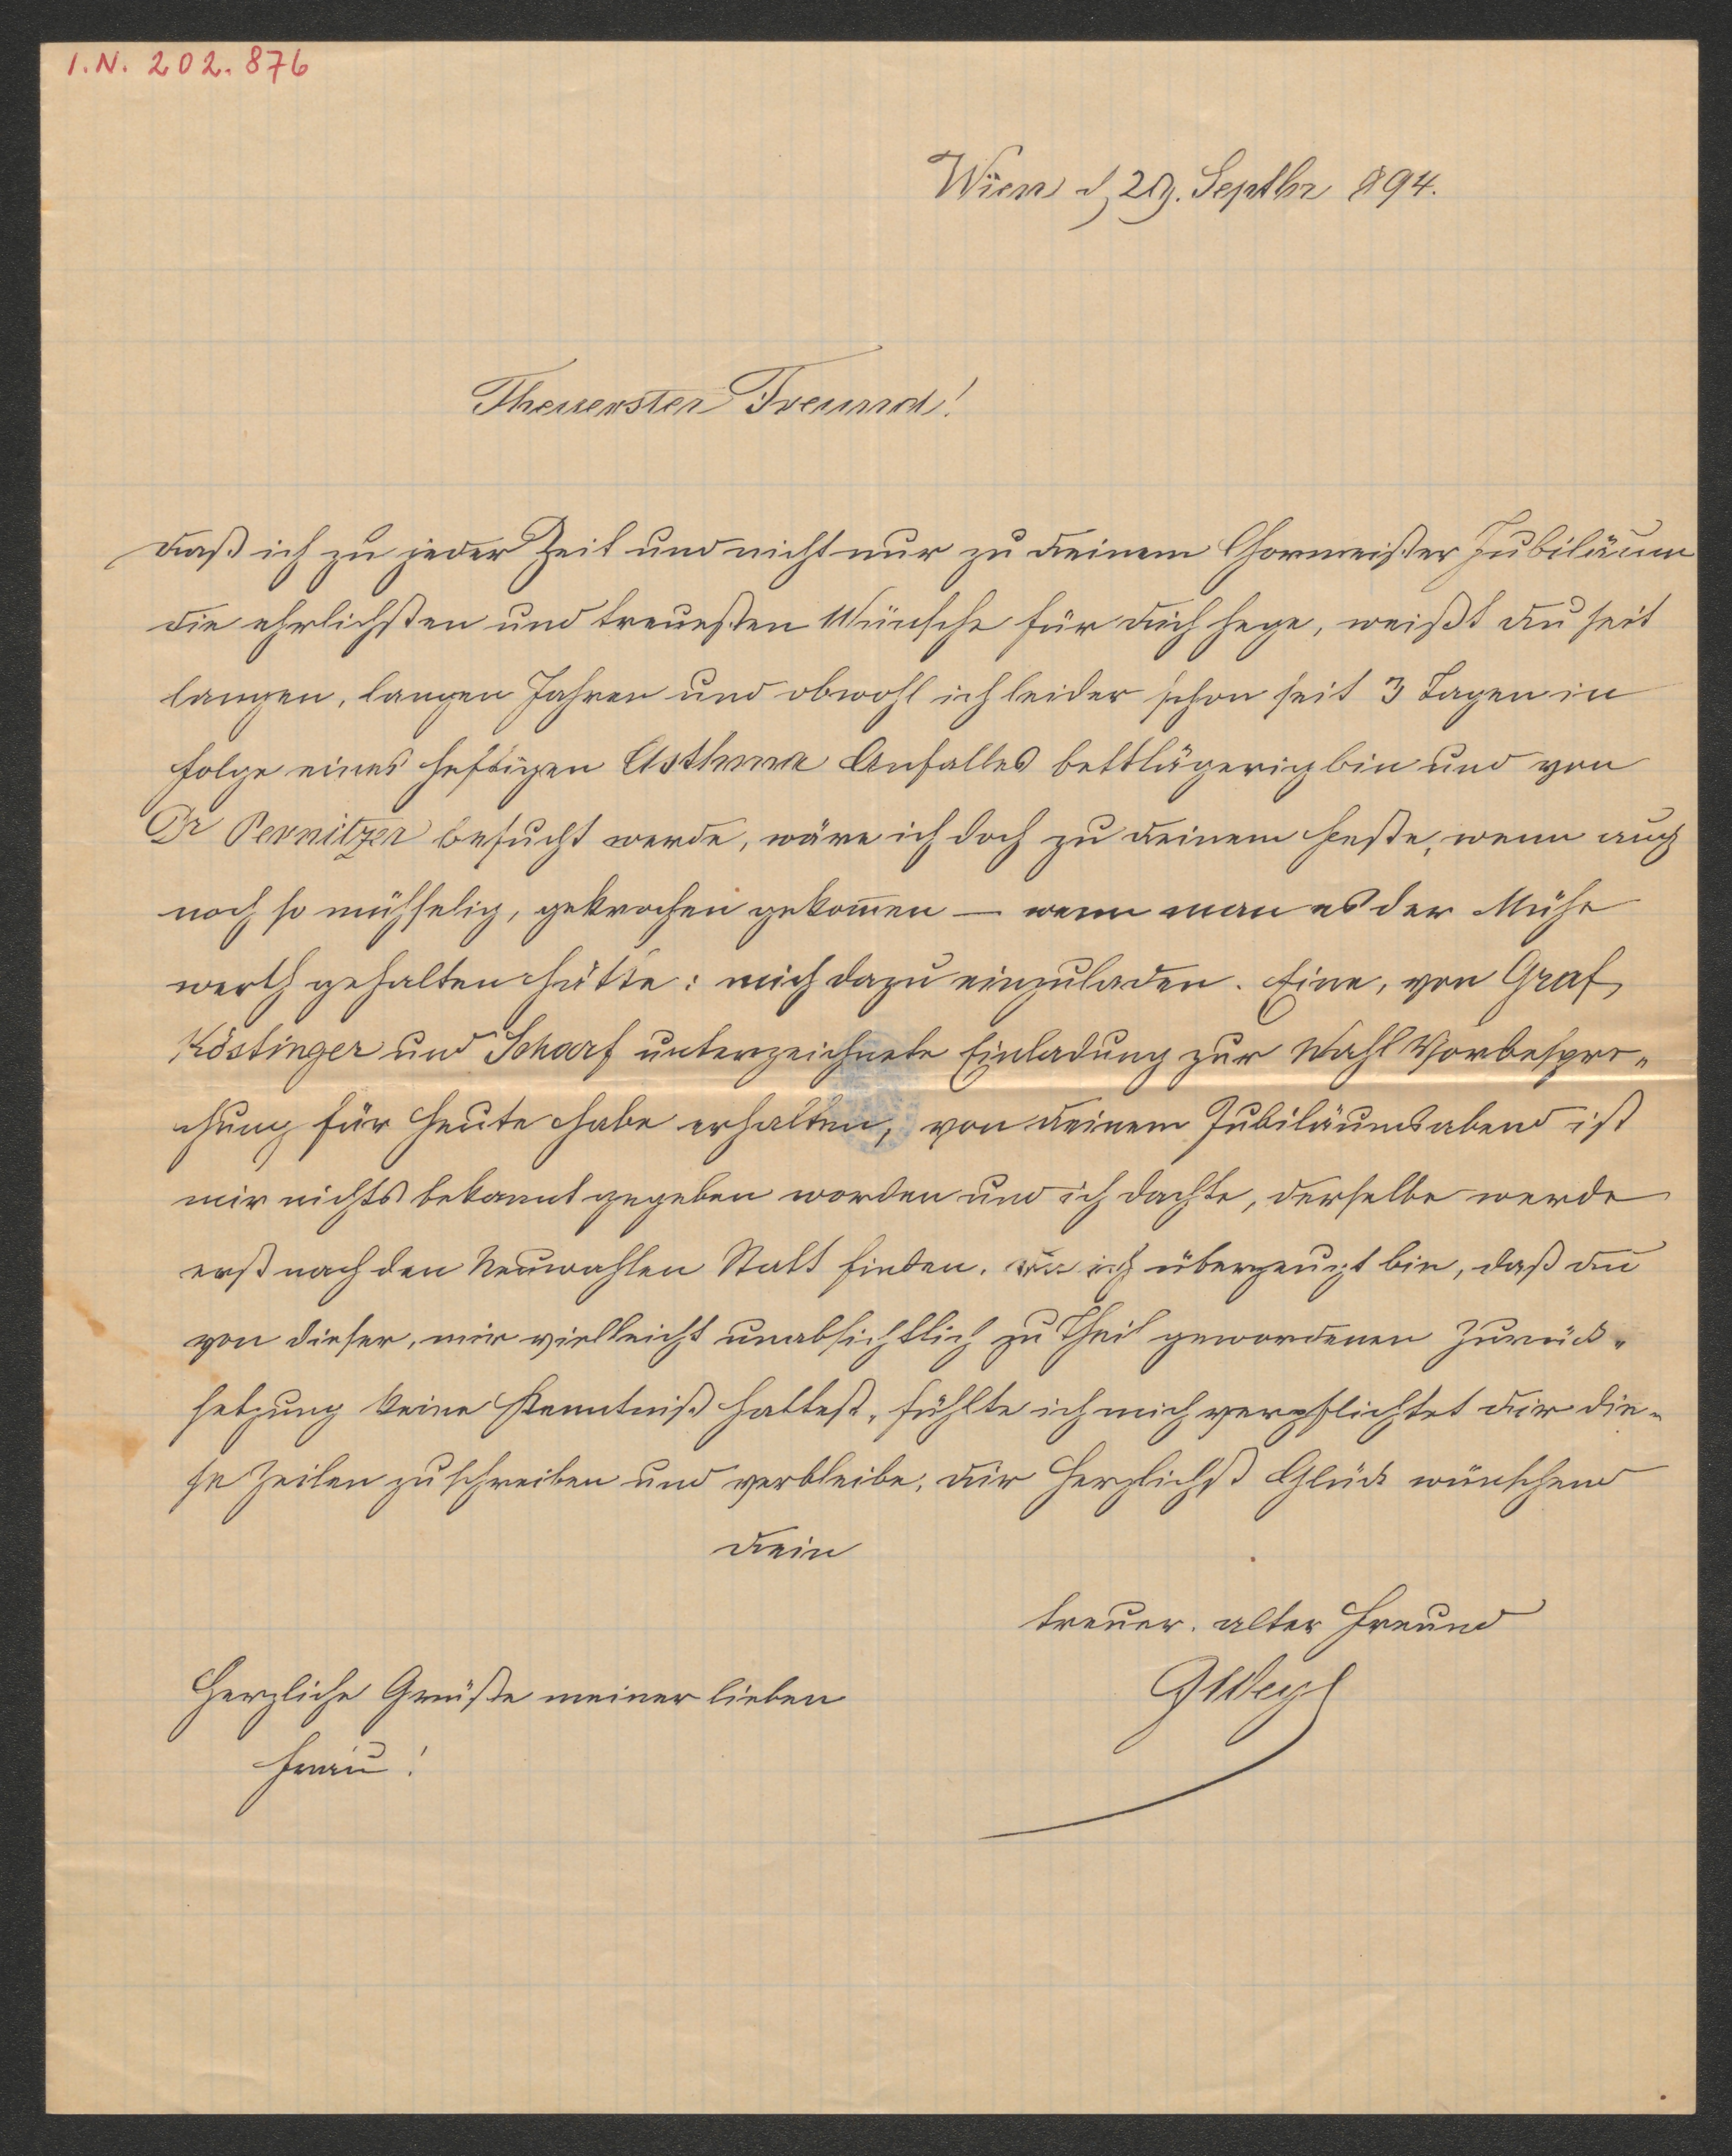 I.N. 202.876
Wien d 29. Septbr 894.
Theuerster Freund!
daß ich zu jeder Zeit und nicht nur zu deinem Chormeister Jubiläum
die ehrlichsten und treuesten Wünsche für dich hege, weißt du seit
langen, langen Jahren und obwohl ich leider schon seit 3 Tagen in
folge eines heftigen Asthma Anfalles bettlägerig bin und von
Dr Pernitzer besucht werde, wäre ich doch zu deinem Feste, wenn auch
noch so mühselig, gekrochen gekom̅en — wenn man es der Mühe
werth gehalten hätte: mich dazu einzuladen. Eine, von Graf,
Köstinger und Scharf unterzeichnete Einladung zur Wahl Vorbespre-
chung für heute habe erhalten, von deinem Jubiläumsabend ist
mir nichts bekannt gegeben worden und ich dachte, derselbe werde
erst nach den Neuwahlen Statt finden. ich überzeugt bin, daß du
von dieser, mir vielleicht unabsichtlich zu Theil gewordenen Zurück-
setzung keine Kenntniß hattest, fühlte ich mich verpflichtet dir die-
se Zeilen zu schreiben und verbleibe, dir herzlichst Glück wünschend
dein
treuer. alter Freund
Herzliche Grüße meiner lieben
Frau!
GWeyl